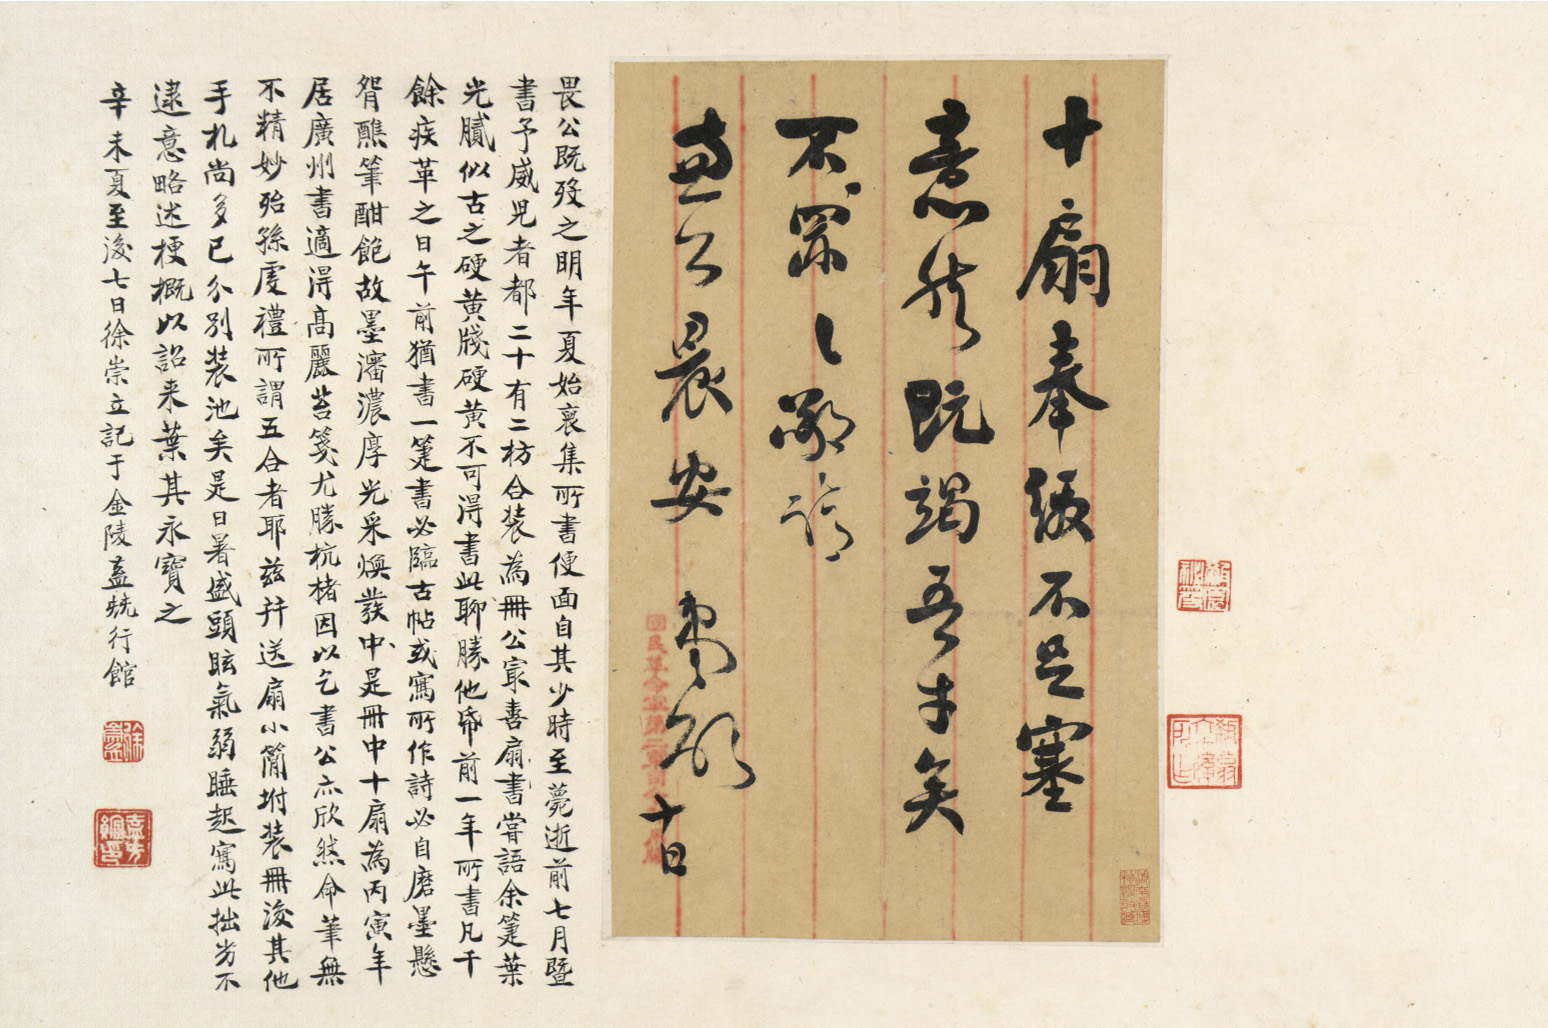 十扇奉缴不足塞
意然既竭吾才矣
不罪々々敬請
盉公晨安 弟闿
十日
畏公既歿之明年夏始裒集所書便面自其少時至薨逝前七月暨
書予威児者都二十有二枋合装為冊公冣喜扇書嘗語余箑葉
光膩似古之硬黄牋硬黄不可得書此聊勝他帋前一年所書凡千
餘疾革之日午前猶書一箑書必臨古帖或寫所作詩必自磨墨懸
肘醮筆酣飽故墨瀋濃厚光采煥發中是冊中十扇為丙寅年
居廣州書適得髙麗苔箋尤勝杭楮因以乞書公亦欣然命筆無
不精妙殆孫虔禮所謂五合者耶兹并送扇小簡坿装冊後其他
手札尚多已分別装池矣是日暑盛頭眩氣弱睡起寫此拙劣不
逮意略述梗概以詔来葉其永寶之
辛未夏至後七日徐崇立記于金陵盉㷀行館